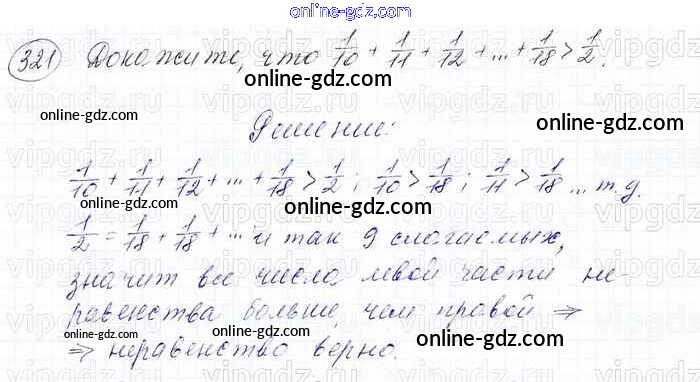 online-gdz.com
321 Докажите, что 1/10 + 1/11 + 1/12 + ... + 1/18 > 1/2.
online-gdz.com
online-gdz.com
Решение:
online-gdz.com
1/10 + 1/11 + 1/12 + ... + 1/18 > 1/2 ; 1/10 > 1/18 ; 1/11 > 1/18 ... т.д.
online-gdz.com
online-gdz.com
1/2 = 1/18 + 1/18 + ... и так 9 слагаемых,
online-gdz.com
значит все числа левой части не-
равенства больше чем правой ⇒
online-gdz.com
online-gdz.com
⇒ неравенство верно.
online-gdz.com